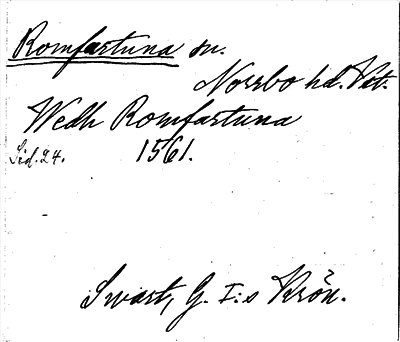 Romfartuna sn.
Norrbo hd. Vst.
Wedh Romfartuna
Sid. 24. 1561.
Swart, G. I:s Krön.